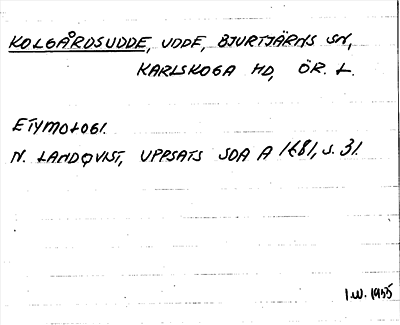 KOLGÅRDSUDDE, UDDE, BJURTJÄRNS SN,
KARLSKOGA HD, ÖR. L.
ETYMOLOGI.
N. LANDQVIST, UPPSATS SOA A 1681, s. 31.
I.W. 1955